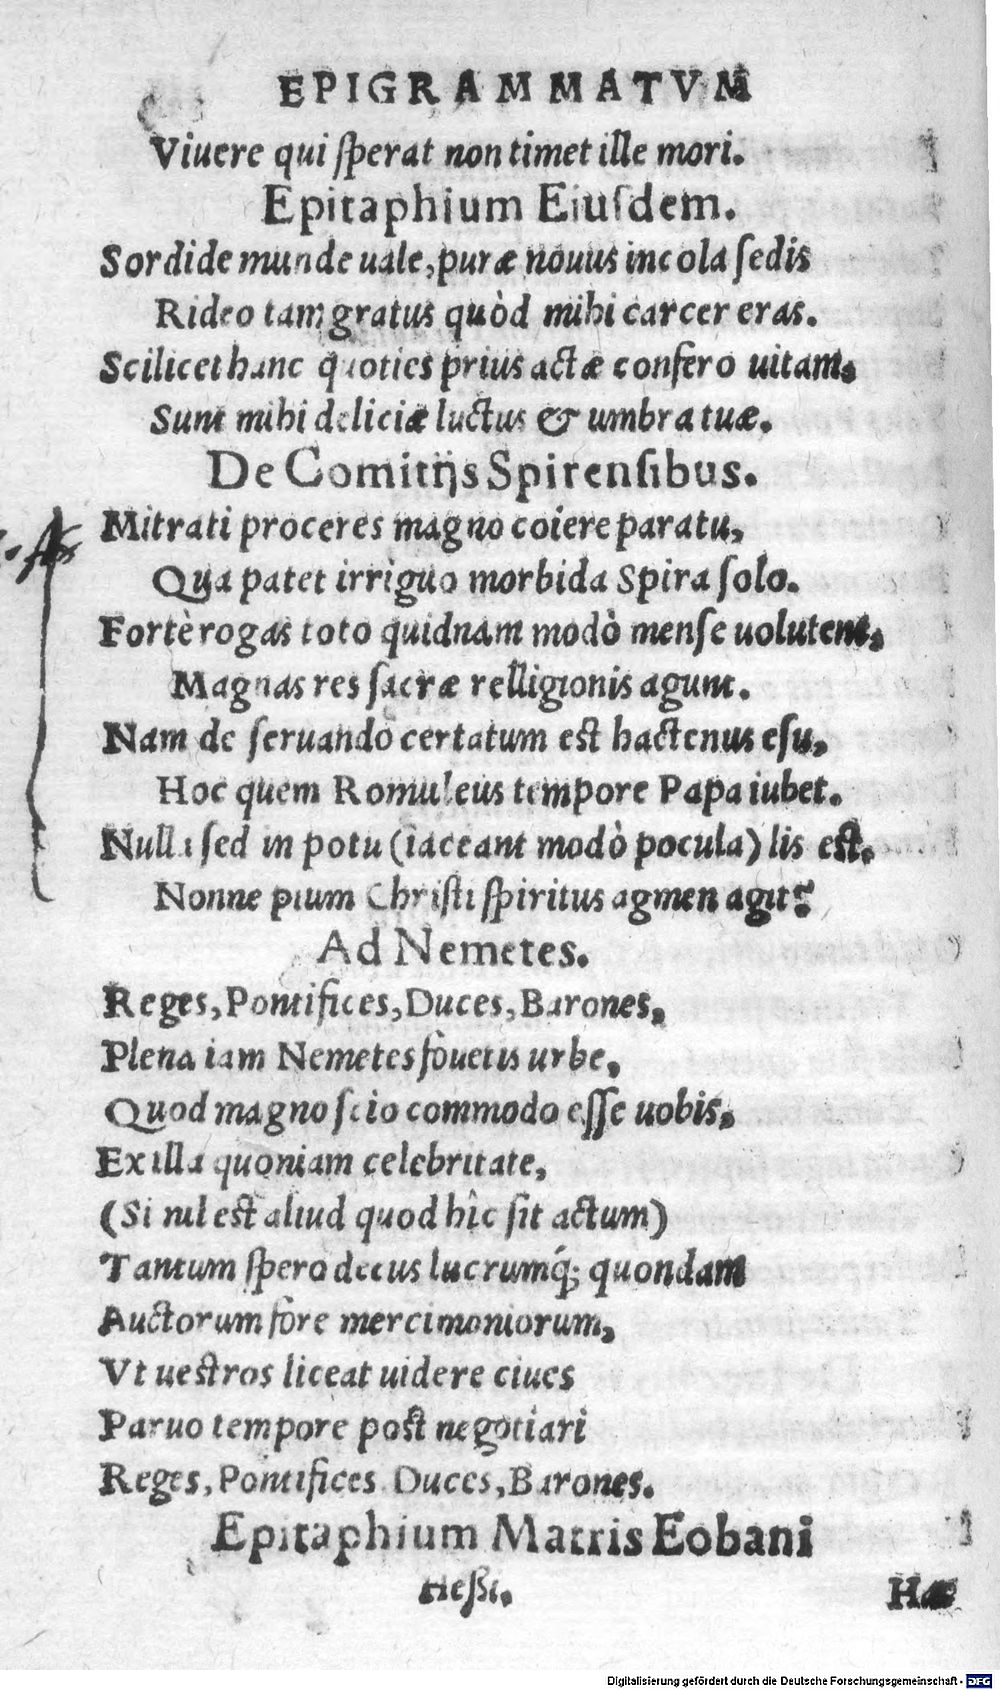 EPIGRAMMATVM
Viuere qui sperat non timet ille mori.
Epitaphium Eiusdem.
Sordide munde uale, puræ nouus incola sedis
Rideo tam gratus quòd mihi carcer eras.
Scilicet hanc quoties prius actæ confero uitam,
Sunt mihi deliciæ luctus & umbra tuæ.
De Comitijs Spirensibus.
Mitrati proceres magno coiere paratu,
Qua patet irriguo morbida Spira solo.
Fortè rogas toto quidnam modò mense uolutent,
Magnas res sacræ relligionis agunt.
Nam de seruando certatum est hactenus esu,
Hoc quem Romuleus tempore Papa iubet.
Nulla sed in potu (iaceant modò pocula) lis est.
Nonne pium Christi spiritus agmen agit?
Ad Nemetes.
Reges, Pontifices, Duces, Barones,
Plena iam Nemetes fouetis urbe,
Quod magno scio commodo esse uobis,
Ex illa quoniam celebritate,
(Si nil est aliud quod hîc sit actum)
Tantum spero decus lucrumq́; quondam
Auctorum fore mercimoniorum,
Vt uestros liceat uidere ciues
Paruo tempore post negotiari
Reges, Pontifices, Duces, Barones.
Epitaphium Matris Eobani
Heßi.
Hæ
Digitalisierung gefördert durch die Deutsche Forschungsgemeinschaft - DFG